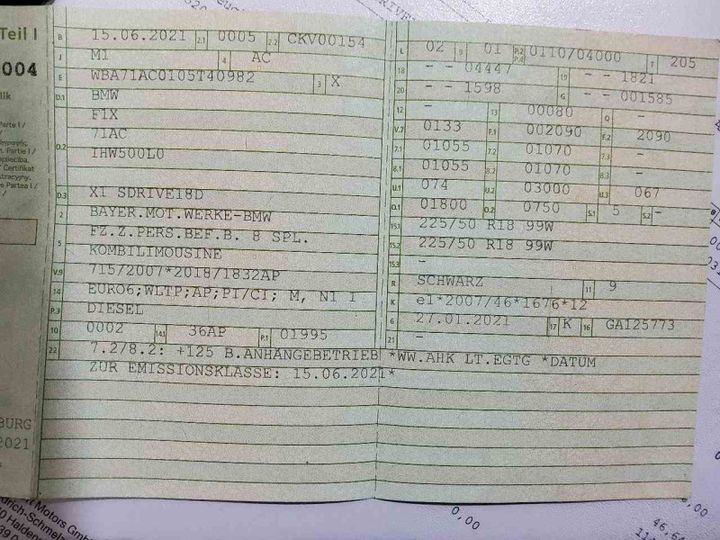 Teil I
004
B 15.06.2021 2.1 0005 2.2 CKV00154
J M1 4 AC
E WBA71AC0105T40982 3 X
D.1 BMW
F1X
71AC
D.2 1HW500L0
D.3 X1 SDRIVE18D
2 BAYER.MOT.WERKE-BMW
FZ.Z.PERS.BEF.B. 8 SPL.
5 KOMBILIMOUSINE
V.9 715/2007*2018/1832AP
14 EURO6;WLTP;AP;PI/CI; M, N1 I
P.3 DIESEL
10 0002 14.1 36AP P.1 01995
22 7.2/8.2: +125 B.ANHÄNGEBETRIEB *WW.AHK LT.EGTG *DATUM
ZUR EMISSIONSKLASSE: 15.06.2021*
L 02 9 01 P.2 P.4 0110/04000 T 205
18 - - 04447 19 - - 1821
20 - - 1598 G - - 001585
12 - 13 00080 Q -
V.7 0133 F.1 002090 F.2 2090
7.1 01055 7.2 01070 7.3 -
8.1 01055 8.2 01070 8.3 -
U.1 074 U.2 03000 U.3 067
O.1 01800 O.2 0750 S.1 5 S.2 -
15.1 225/50 R18 99W
15.2 225/50 R18 99W
15.3 -
R SCHWARZ 11 9
K e1*2007/46*1676*12
6 27.01.2021 17 K 16 GA125773
21 -
BURG
2021
Motors Gmb
0,00